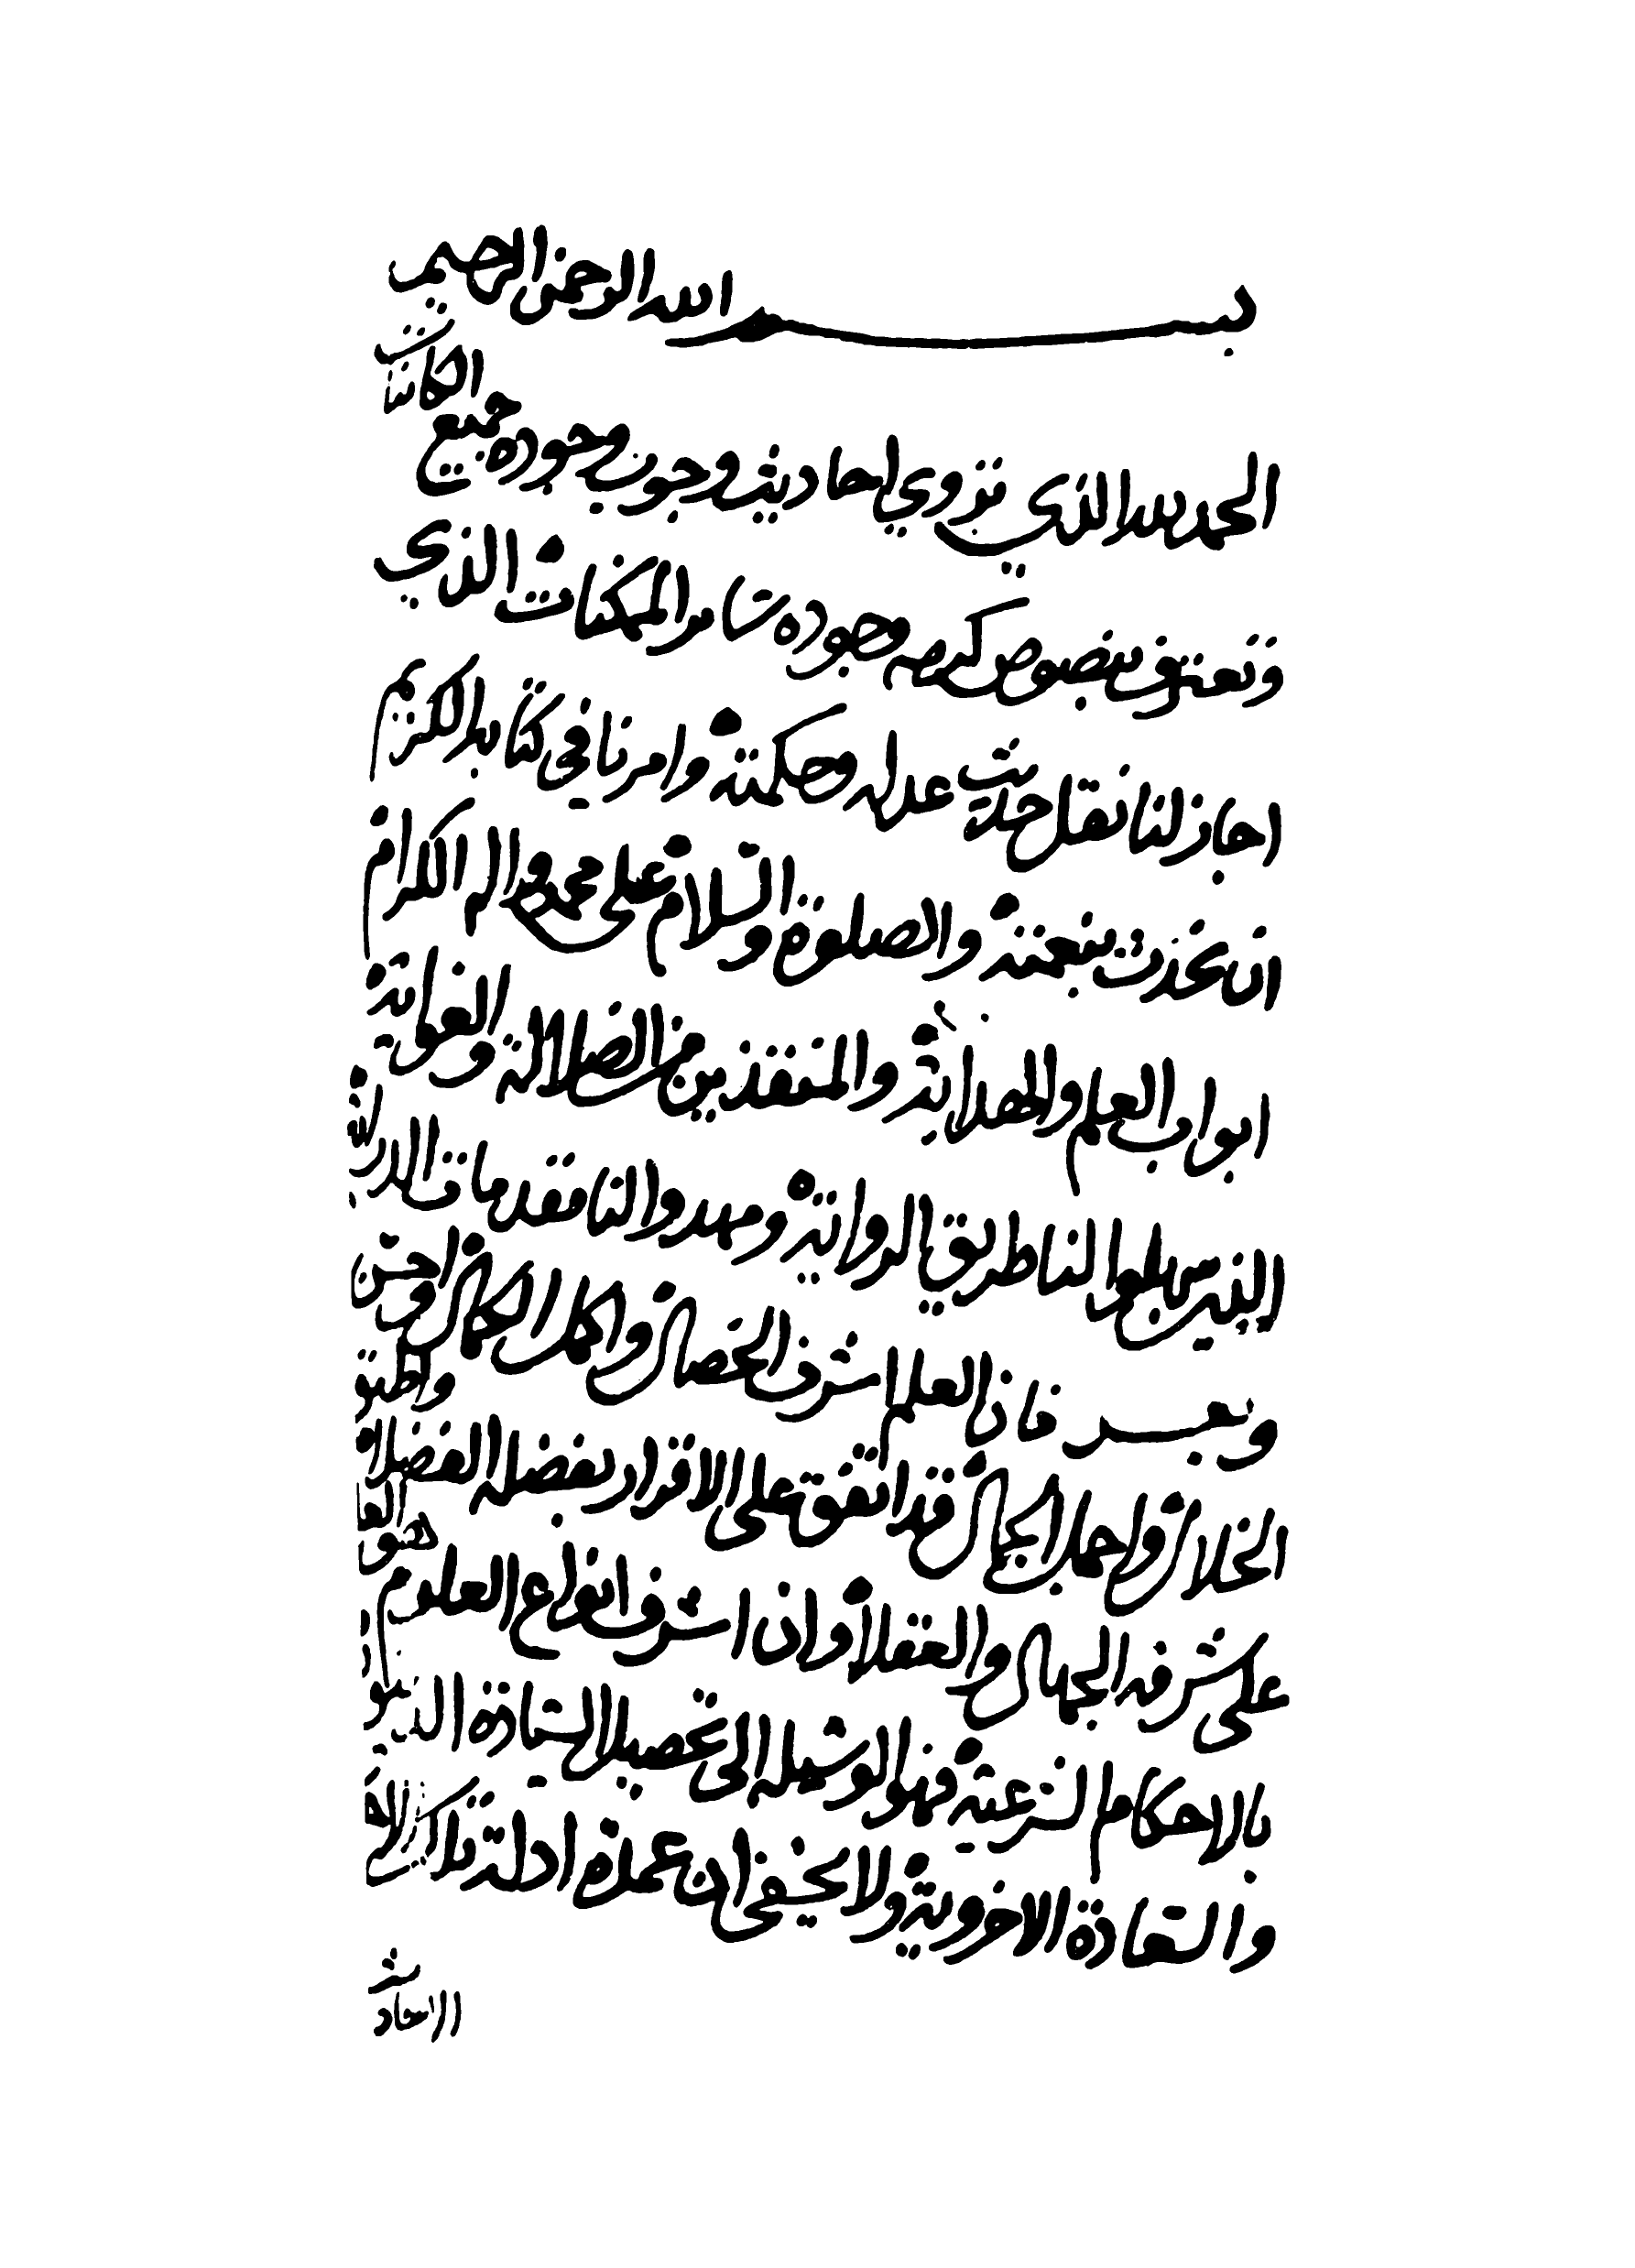 بسم الله الرحمن الرحيم
الحمد لله الذي تروي احاديث وجوب وجوده جميع الكائنات
وتعترف بنصوص كرمه وجوده سائر الممكنات الذي
اجاز لنا نقل حديث عدله وحكمته وامرنا في كتابه الكريم
ان نحدث بنعمته والصلوة والسلام على محمد واله الكرام
ابواب العلم والهداية والمنقذين من الضلالة والغواية
الذين بلغوا لنا طريق الرواية ومهدوا لنا مقدمات الدراية
وبعد فان العلم اشرف الخصال واكمل الكمال واحسن
الخلال واجمل الجمال قد اتفق على الاقرار بفضله الفضلاء واطبق
على شرفه الجهال والعقلاء وان اشرف انواع العلوم هو العلم
بالاحكام الشرعية فهو الوسيلة الى تحصيل السعادة الدنيوية
والسعادة الاخروية ولا يخفى ان عمدة ادلة تلك
الاحاديث